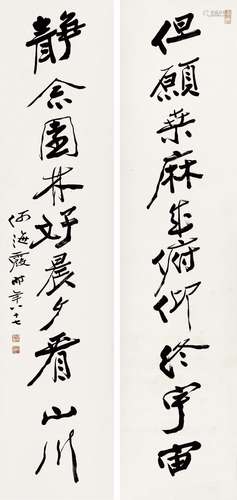 但願桑麻成俯仰終宇宙
静念園林好晨夕看山川
何海霞時年八十七